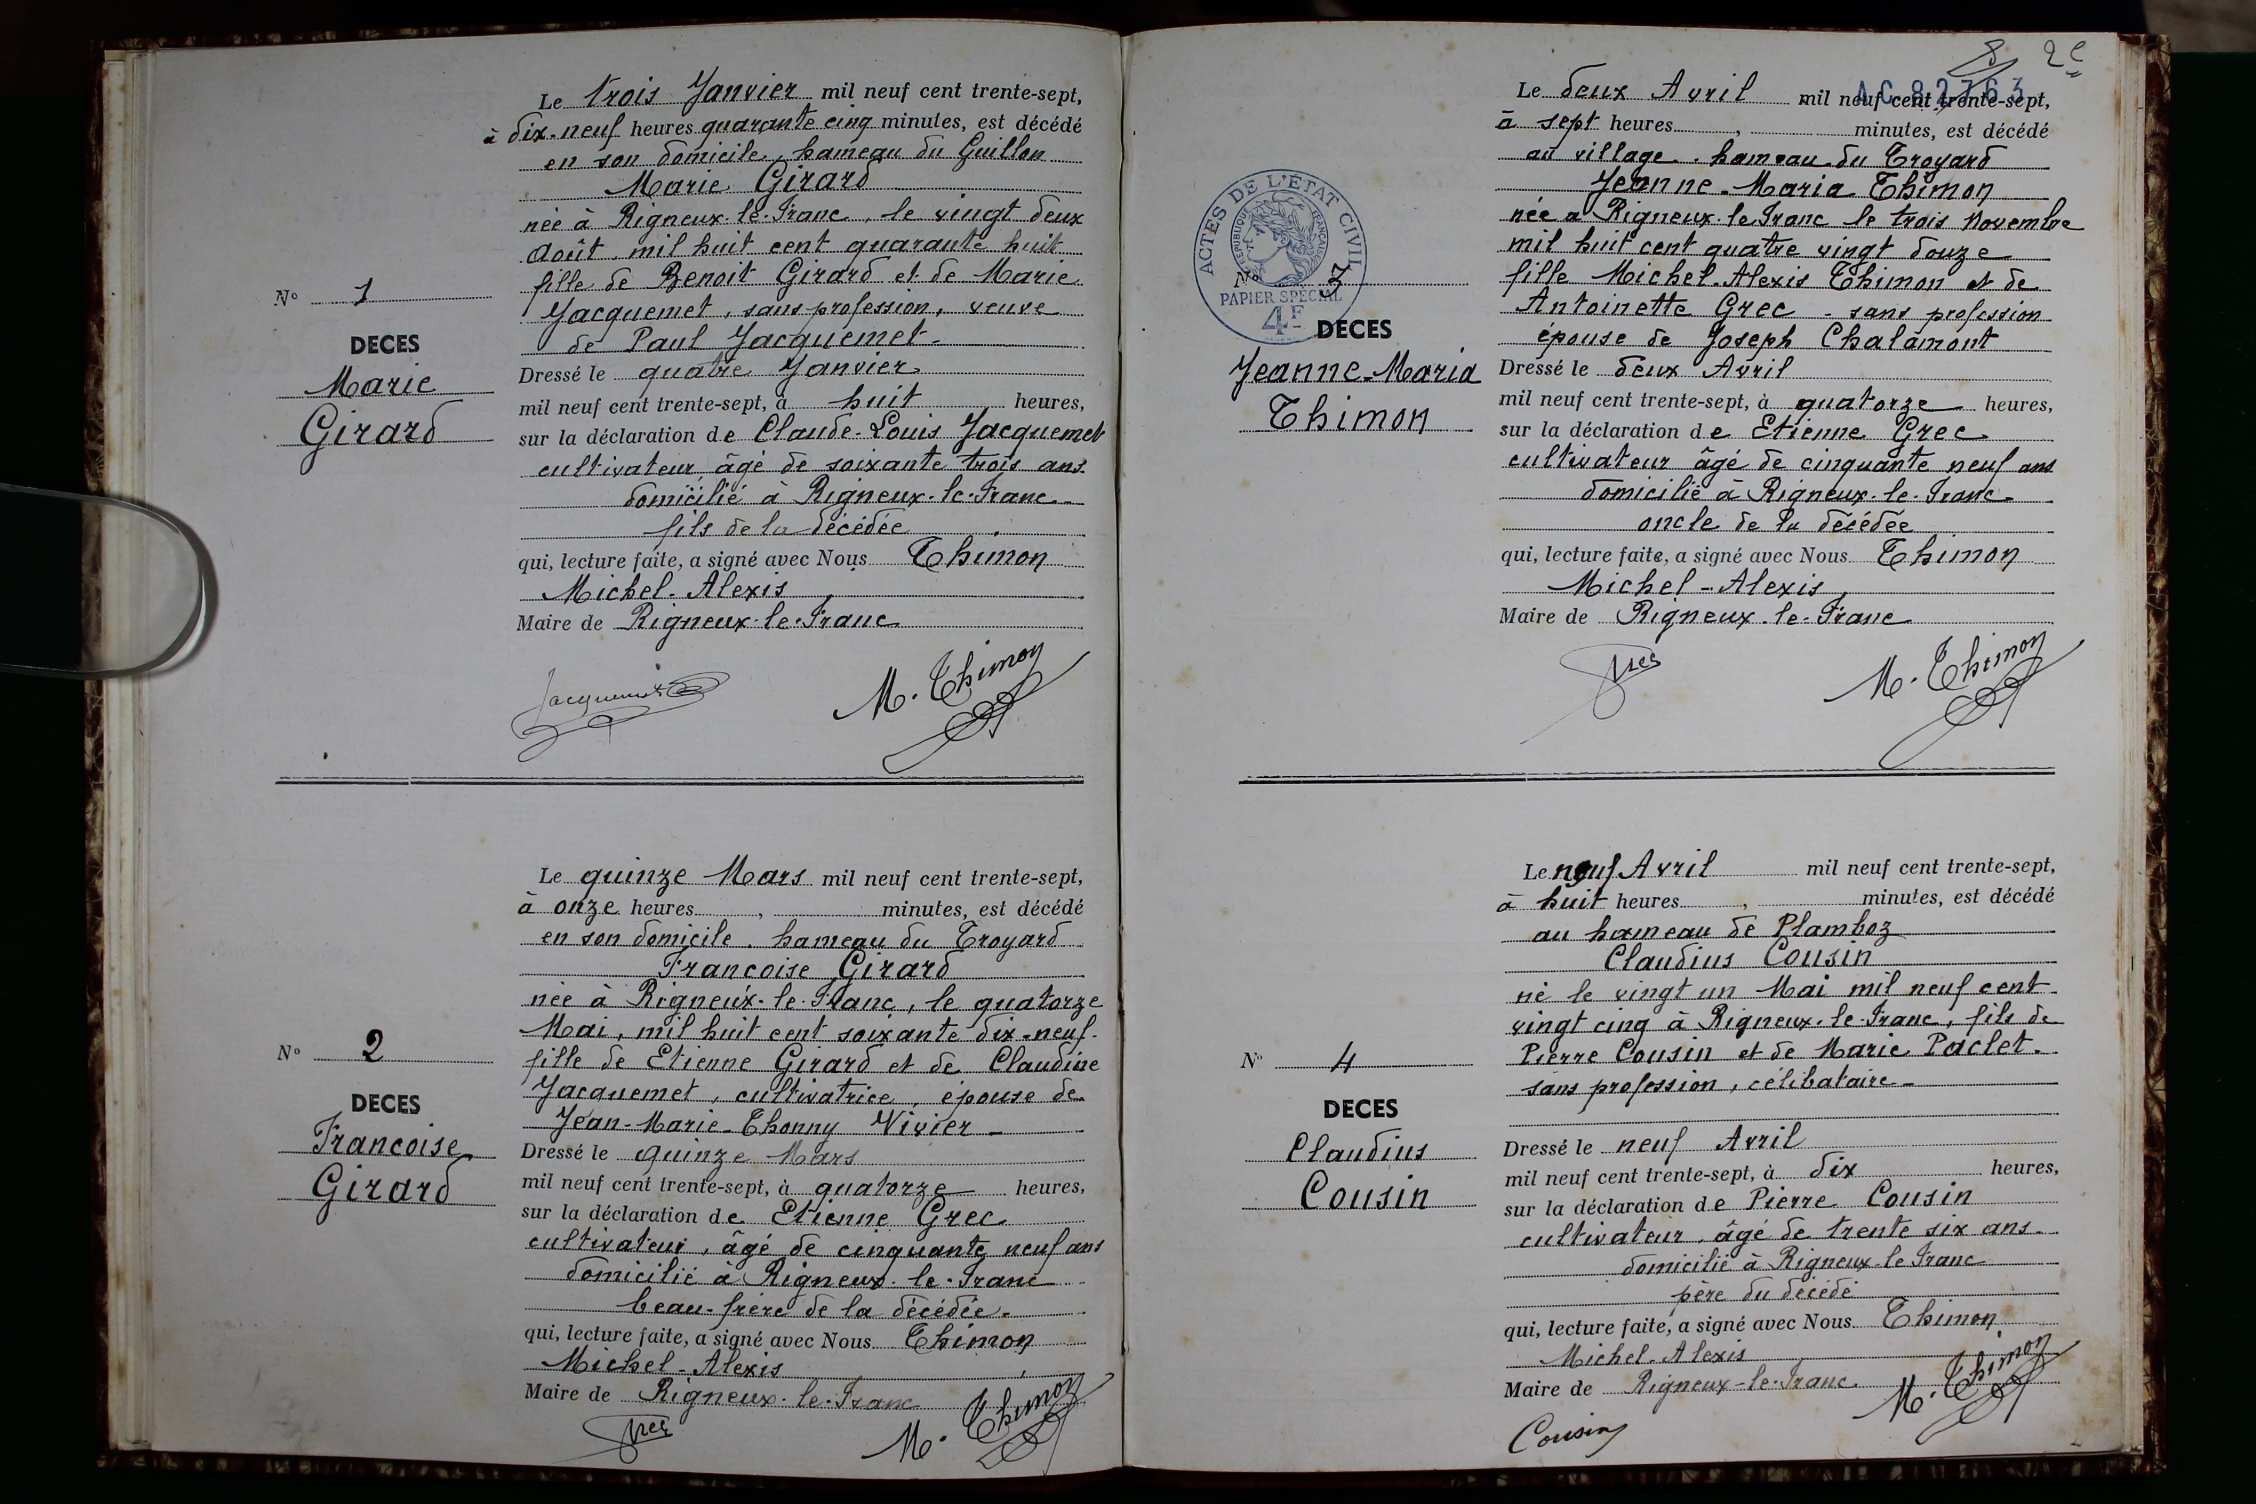 Le trois Janvier mil neuf cent trente-sept,
à dix-neuf heures quarante cinq minutes, est décédé
en son domicile, hameau du Guillon
Marie Girard
née à Rigneux-le-Franc, le vingt deux
Août, mil huit cent quarante huit
fille de Benoit Girard et de Marie
Jacquemet, sans profession, veuve
de Paul Jacquemet-
Dressé le quatre Janvier
mil neuf cent trente-sept, à huit heures,
sur la déclaration de Claude-Louis Jacquemet
cultivateur, âgé de soixante trois ans
domicilié à Rigneux-le-Franc
fils de la décédée
qui, lecture faite, a signé avec Nous Thimon
Michel-Alexis
Maire de Rigneux-le-Franc
Jacquemet
M. Thimon
N° 1
DECES
Marie
Girard
Le quinze Mars mil neuf cent trente-sept,
à onze heures , minutes, est décédé
en son domicile, hameau du Troyard
Francoise Girard
née à Rigneux-le-Franc, le quatorze
Mai, mil huit cent soixante dix-neuf-
fille de Etienne Girard et de Claudine
Jacquemet, cultivatrice, épouse de
Jean-Marie-Thonny Vivier-
Dressé le quinze Mars
mil neuf cent trente-sept, à quatorze heures,
sur la déclaration de Etienne Grec
cultivateur, âgé de cinquante neuf ans
domicilié à Rigneux-le-Franc
beau-frère de la décédée-
qui, lecture faite, a signé avec Nous Thimon
Michel-Alexis
Maire de Rigneux-le-Franc
Grec
M. Thimon
N° 2
DECES
Francoise
Girard
2e
AC 82763
Le deux Avril mil neuf cent trente-sept,
à sept heures , minutes, est décédé
au village, hameau du Troyard
Jeanne-Maria Thimon
née à Rigneux-le-Franc le trois Novembre
mil huit cent quatre vingt douze
fille Michel-Alexis Thimon et de
Antoinette Grec - sans profession
épouse de Joseph Chalamont
Dressé le deux Avril
mil neuf cent trente-sept, à quatorze heures,
sur la déclaration de Etienne Grec
cultivateur âgé de cinquante neuf ans
domicilié à Rigneux-le-Franc-
oncle de la décédée
qui, lecture faite, a signé avec Nous Thimon
Michel-Alexis
Maire de Rigneux-le-Franc
Grec
M. Thimon
ACTES DE L'ÉTAT CIVIL
RÉPUBLIQUE FRANÇAISE
PAPIER SPÉCIAL
4F
N° 3
DECES
Jeanne-Maria
Thimon
Le neuf Avril mil neuf cent trente-sept,
à huit heures , minutes, est décédé
au hameau de Plamboz
Claudius Cousin
né le vingt un Mai mil neuf cent-
vingt cinq à Rigneux-le-Franc, fils de
Pierre Cousin et de Marie Paclet-
sans profession, célibataire-
Dressé le neuf Avril
mil neuf cent trente-sept, à dix heures,
sur la déclaration de Pierre Cousin
cultivateur, âgé de trente six ans-
domicilié à Rigneux-le-Franc
père du décédé
qui, lecture faite, a signé avec Nous Thimon
Michel-Alexis
Maire de Rigneux-le-Franc
M. Thimon
Cousin
N° 4
DECES
Claudius
Cousin